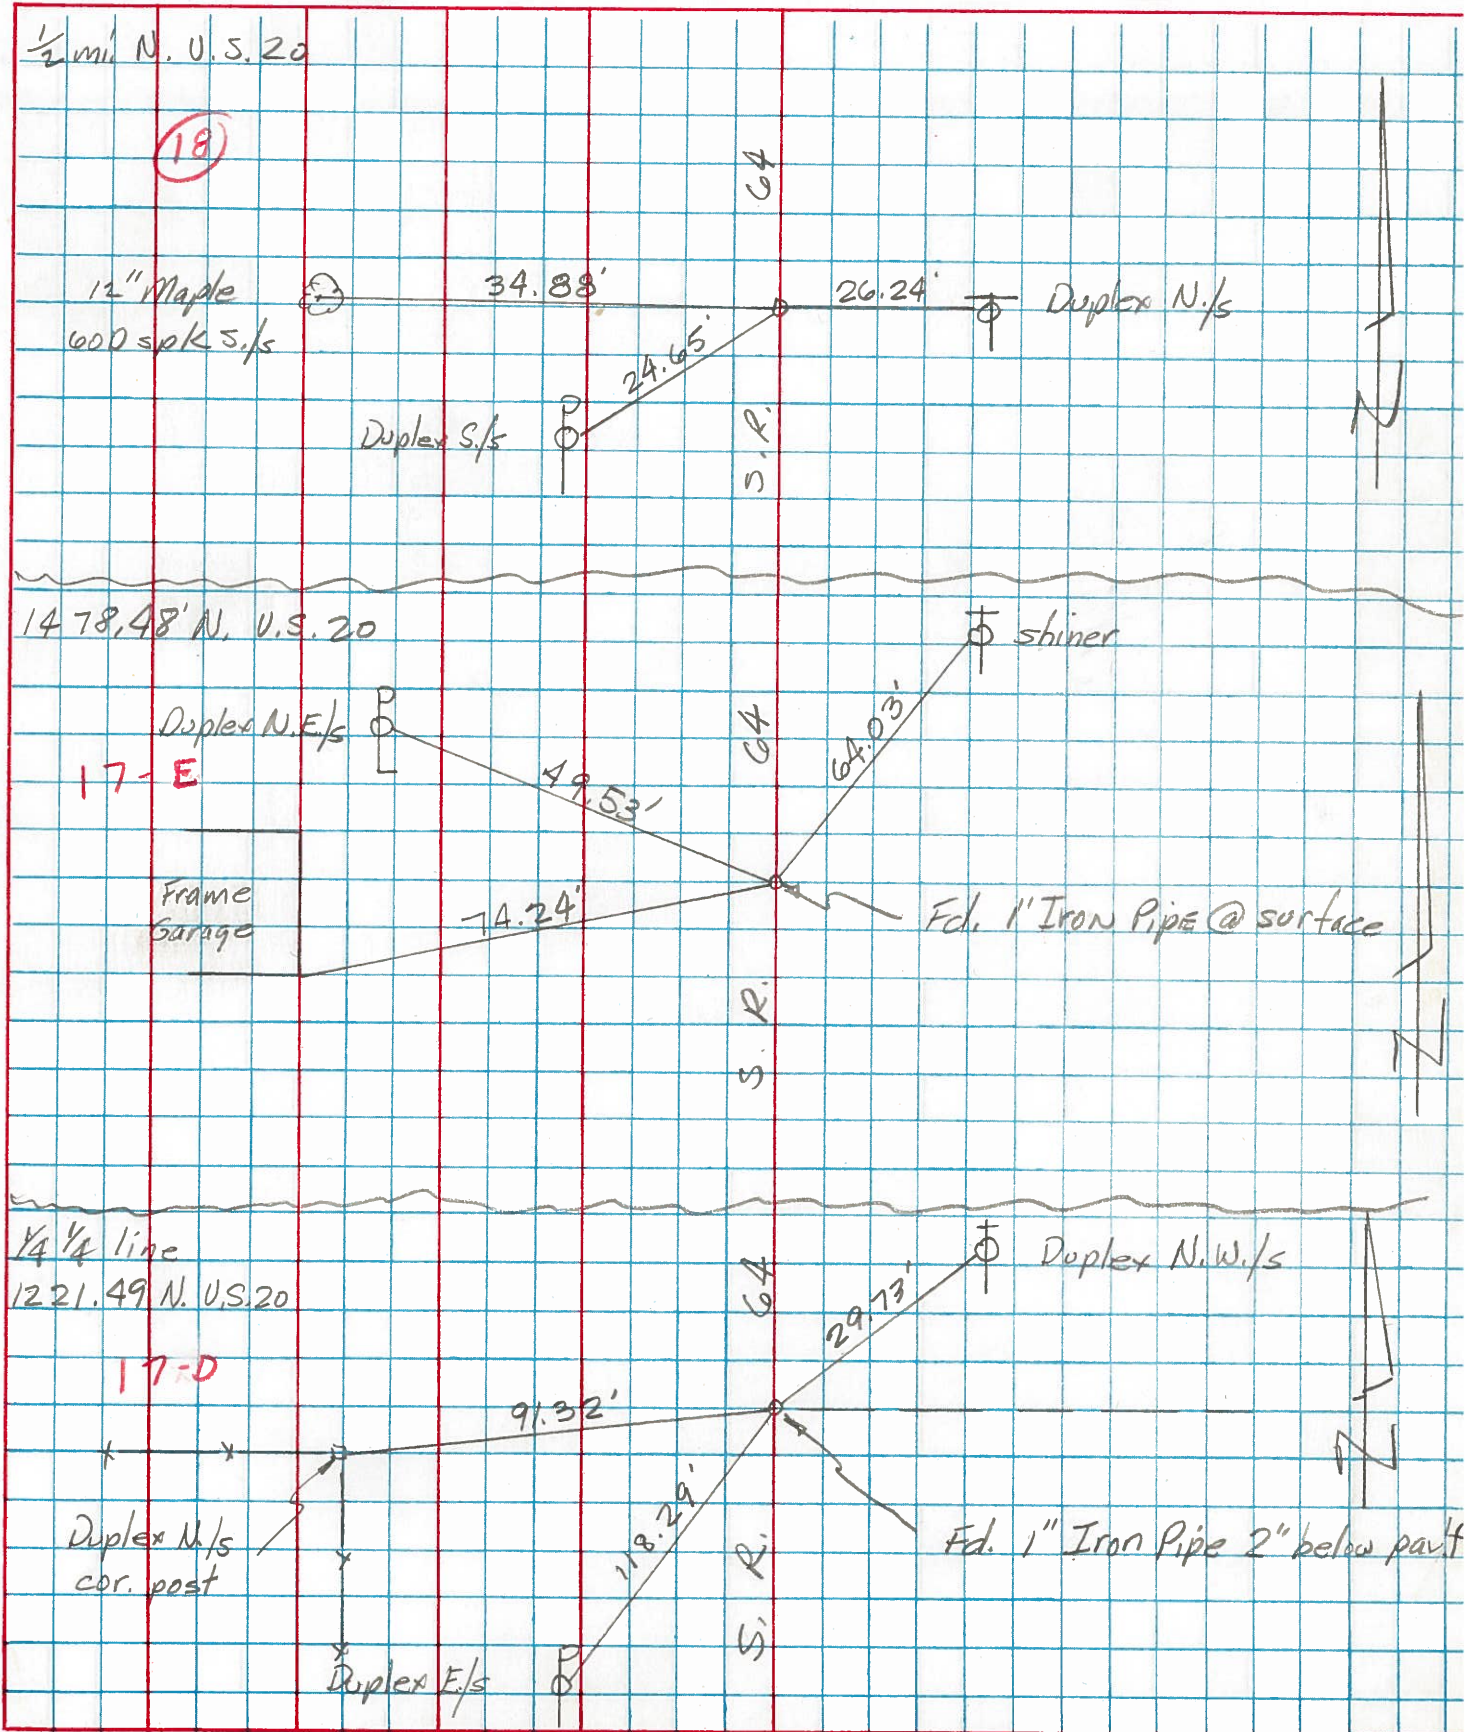 1/2 mi. N. U.S. 20
18
64
12" Maple
60D spk S./s
34.88'
26.24'
Duplex N./s
24.65'
Duplex S./s
S. R.
N
1478.48' N. U.S. 20
shiner
Duplex N.E./s
64
64.03'
17-E
49.53'
Frame
Garage
74.24'
Fd. 1" Iron Pipe @ surface
S. R.
N
1/4 1/4 line
1221.49 N. U.S.20
64
Duplex N.W./s
29.73'
17-D
91.32'
N
Duplex N./s
cor. post
118.29'
S. R.
Fd. 1" Iron Pipe 2" below pav't
Duplex E./s